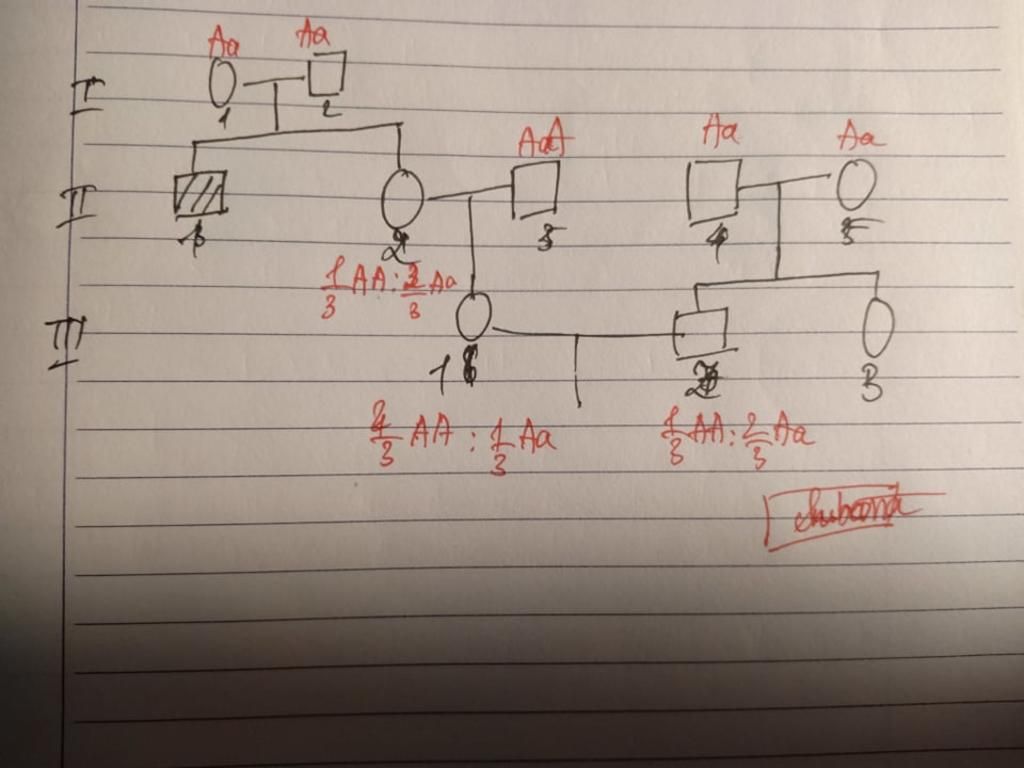 Aa Aa
I
1 2
AaA Aa Aa
II
1 2 3 4 5
1/3 AA : 2/3 Aa
III
1 2 3
2/3 AA : 1/3 Aa 1/3 AA : 2/3 Aa